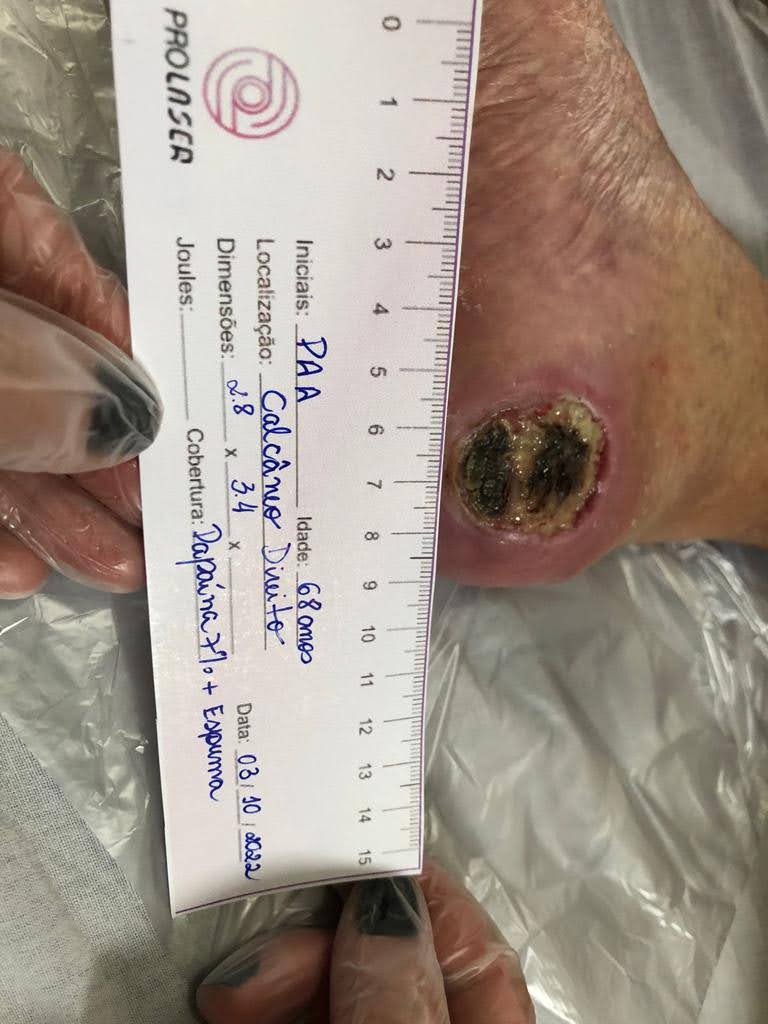 0 1 2 3 4 5 6 7 8 9 10 11 12 13 14 15
Iniciais: PAA Idade: 68 anos
Localização: Calcâneo Direito
Dimensões: 2.8 x 3.4 x Data: 03/10/2022
Joules: Cobertura: Papaína 7% + Espuma
PROLASER